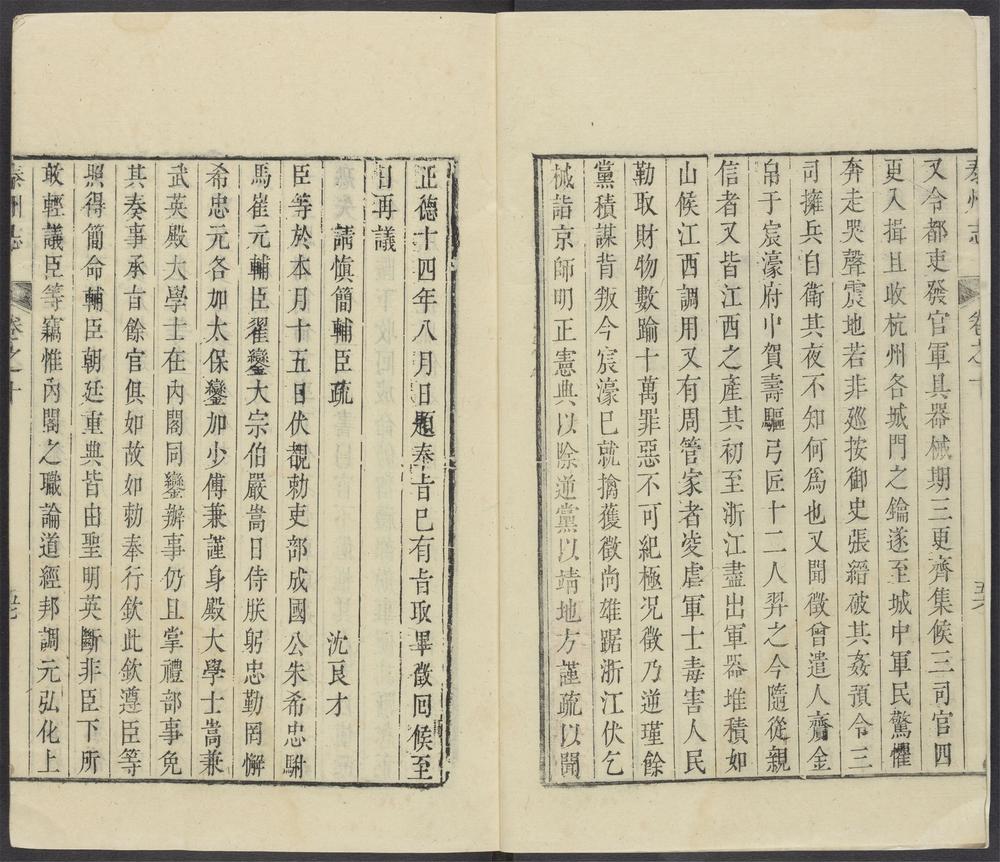 泰州志 卷之十
又令都吏發官軍具器械期三更齊集候三司官四
更入揖且收杭州各城門之鑰遂至城中軍民驚懼
奔走哭聲震地若非廵按御史張縉破其姦預令三
司擁兵自衛其夜不知何爲也又聞徵曾遣人齎金
帛于宸濠府中賀壽驅弓匠十二人羿之今隨從親
信者又皆江西之產其初至浙江盡出軍器堆積如
山候江西調用又有周管家者凌虐軍士毒害人民
勒取財物數踰十萬罪惡不可紀極况徵乃逆瑾餘
黨積謀背叛今宸濠已就擒獲徵尚雄踞浙江伏乞
械詣京師明正憲典以除逆黨以靖地方謹疏以聞
正德十四年八月日題奉㫖已有㫖取畢徵回候至
日再議
請愼簡輔臣疏
沈良才
臣等於本月十五日伏覩勅吏部成國公朱希忠駙
馬崔元輔臣翟鑾大宗伯嚴嵩日侍朕躬忠勤罔懈
希忠元各加太保鑾加少傅兼謹身殿大學士嵩兼
武英殿大學士在内閣同鑾辦事仍且掌禮部事免
其奏事承㫖餘官俱如故如勅奉行欽此欽遵臣等
照得簡命輔臣朝廷重典皆由聖明英斷非臣下所
敢輕議臣等竊惟内閣之職論道經邦調元弘化上
泰州志 卷之十